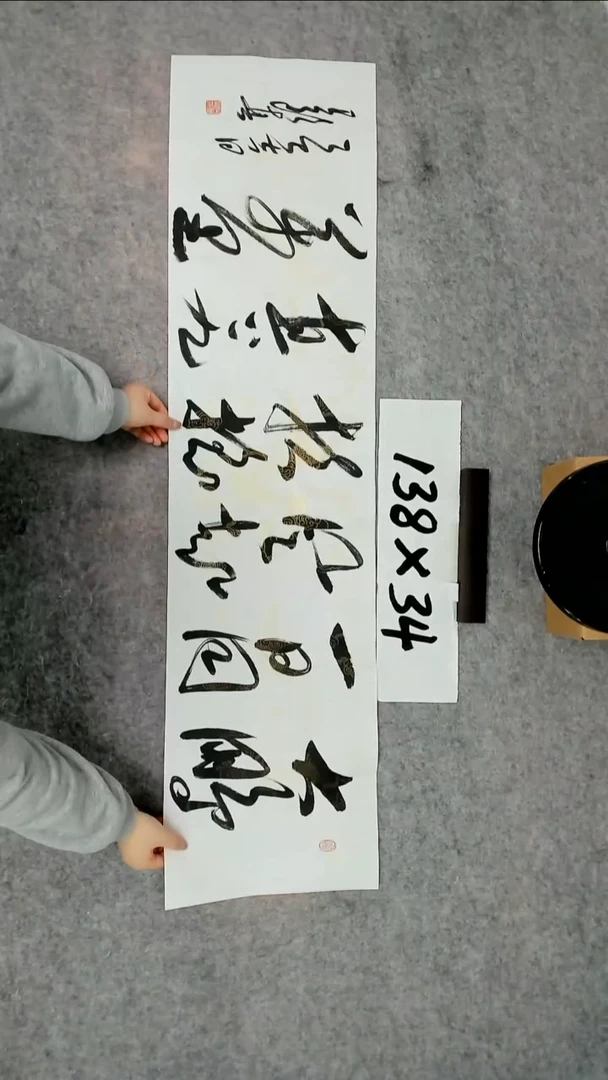 大鹏
一日同
风起
扶摇
直上九
萬里
138×34